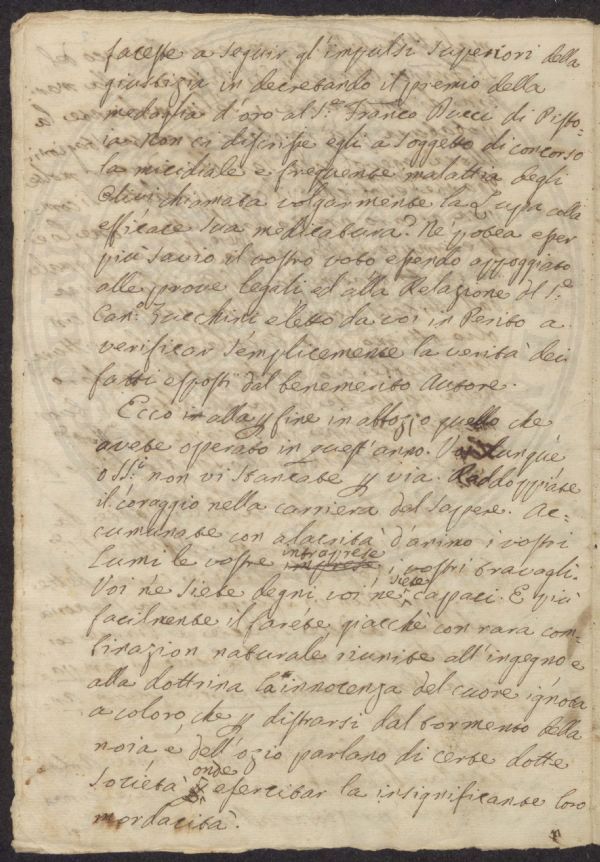 facesse a seguir gl'impulsi superiori della
giustizia in decretando il premio della
medaglia d'oro al S.r Franco Bucci di Pisto-
ia. Non ci descrisse egli a soggetto di concorso
la micidiale e frequente malattia degli
Olivi chiamata volgarmente la Lupa colla
efficace sua medicatura? Ne potea esser
più savio il vostro voto essendo appoggiato
alle prove legali ed alla Relazione del S.r
Can.o Zucchini eletto da voi in Perito a
verificar semplicemente la verità dei
fatti esposti dal benemerito Autore.
Ecco in alla p fine in abbozzo quello che
avete operato in quest'anno. Voi dunque
o SS.ri non vi stancate p via. Raddoppiate
il coraggio nella carriera del sapere. Ac-
cumunate con alacrità d'animo i vostri
Lumi le vostre intraprese, i vostri travagli.
Voi ne siete degni, voi ne siete capaci. E più
facilmente il farete giacchè con rara com-
binazion naturale riunite all'ingegno e
alla dottrina la innocenza del cuore ignota
a coloro che p distrarsi dal tormento della
noia e dell'ozio parlano di certe dotte
società onde esercitar la insignificante loro
mordacità.